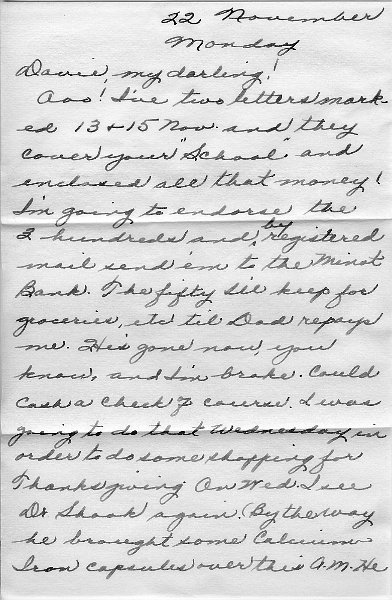 22 November
Monday
Davie, my darling!
Aoo! I've two letters mark-
ed 13 + 15 Nov. and they
cover your "School" and
enclosed all that money!
I'm going to endorse the
2 hundreds and, by registered
mail send 'em to the Minot
Bank. The fifty I'll keep for
groceries, etc 'til Dad repays
me. He's gone now, you
know, and I'm broke. Could
cash a check of course. I was
going to do that Wednesday in
order to do some shopping for
Thanksgiving. On Wed. I see
Dr Shook again. (By the way
he brought some Calcium
Iron capsules over this A.M. He